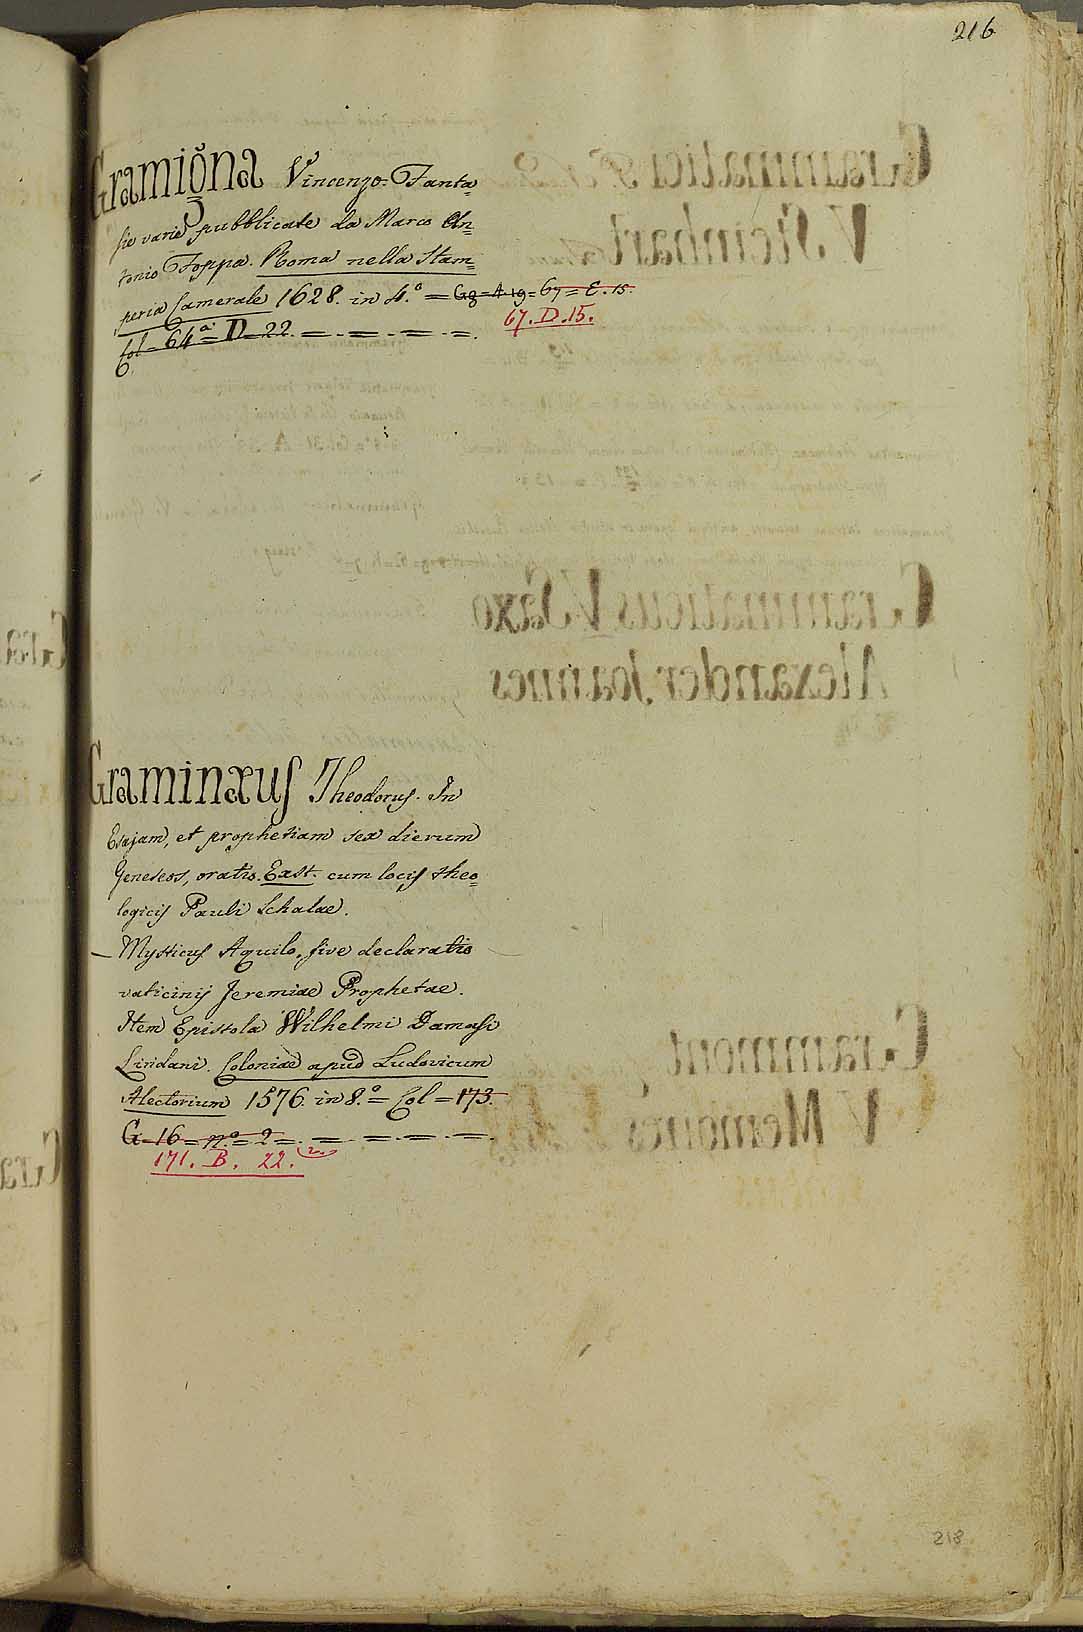 216
Gramigna Vincenzo. Fanta=
sie varie pubblicate da Marco An=
tonio Foppa. Roma nella Stam=
peria Camerale 1628. in 4.º = G8 = A 19 = 67 = E. 15.
67. D. 15.
Col = 64ª = D = 22. = = = = =.
Graminæus Theodorus. In
Esajam, et prophetiam sex dierum
Geneseos, oratio. Exst. cum locis theo=
logicis Pauli Schalae.
— Mysticus Aquilo, sive declaratio
vaticinij Jeremiae Prophetae.
Item Epistola Wilhelmi Damasi
Lindani. Coloniae apud Ludovicum
Alectorium 1576. in 8.º = Col = 173.
G = 16 = n.º = 2 = . = = = =.
171. B. 22. 2.
218